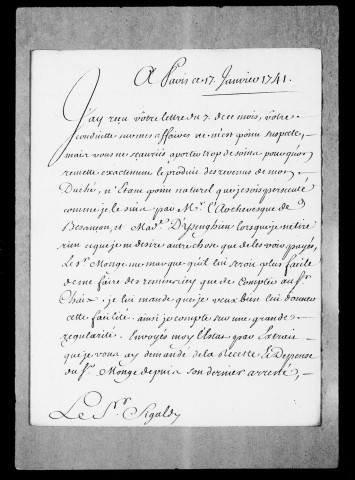 A Paris ce 17. Janvier 1741.
J'ay reçu vôtre lettre du 7. de ce mois, vôtre
conduitte sur mes affaires ne m'est point suspecte,
mais vous ne sçauriés aporter trop de soins pour qu'on
remette exactement le produit des revenus de mon
Duché, n'Etant point naturel que je sois persecuté
comme je le suis par Mr. l'Archevesque de
Besançon, et Made. D'Isenghien lorsque je ne tire
rien et que je ne desire autre chose que de les voir payés,
Le Sr. Monge me marque qu'il lui seroit plus facile
de me faire des remises icy que de compter au Sr.
Chaix. je lui mande que je veux bien lui donner
cette facilité. ainsi je compte sur une grande
regularité. Envoyés moy l'Estat par Extrait
que je vous ay demandé de la Recette et Depense
du Sr. Monge depuis son dernier arresté,
Le Sr. Sigaldy